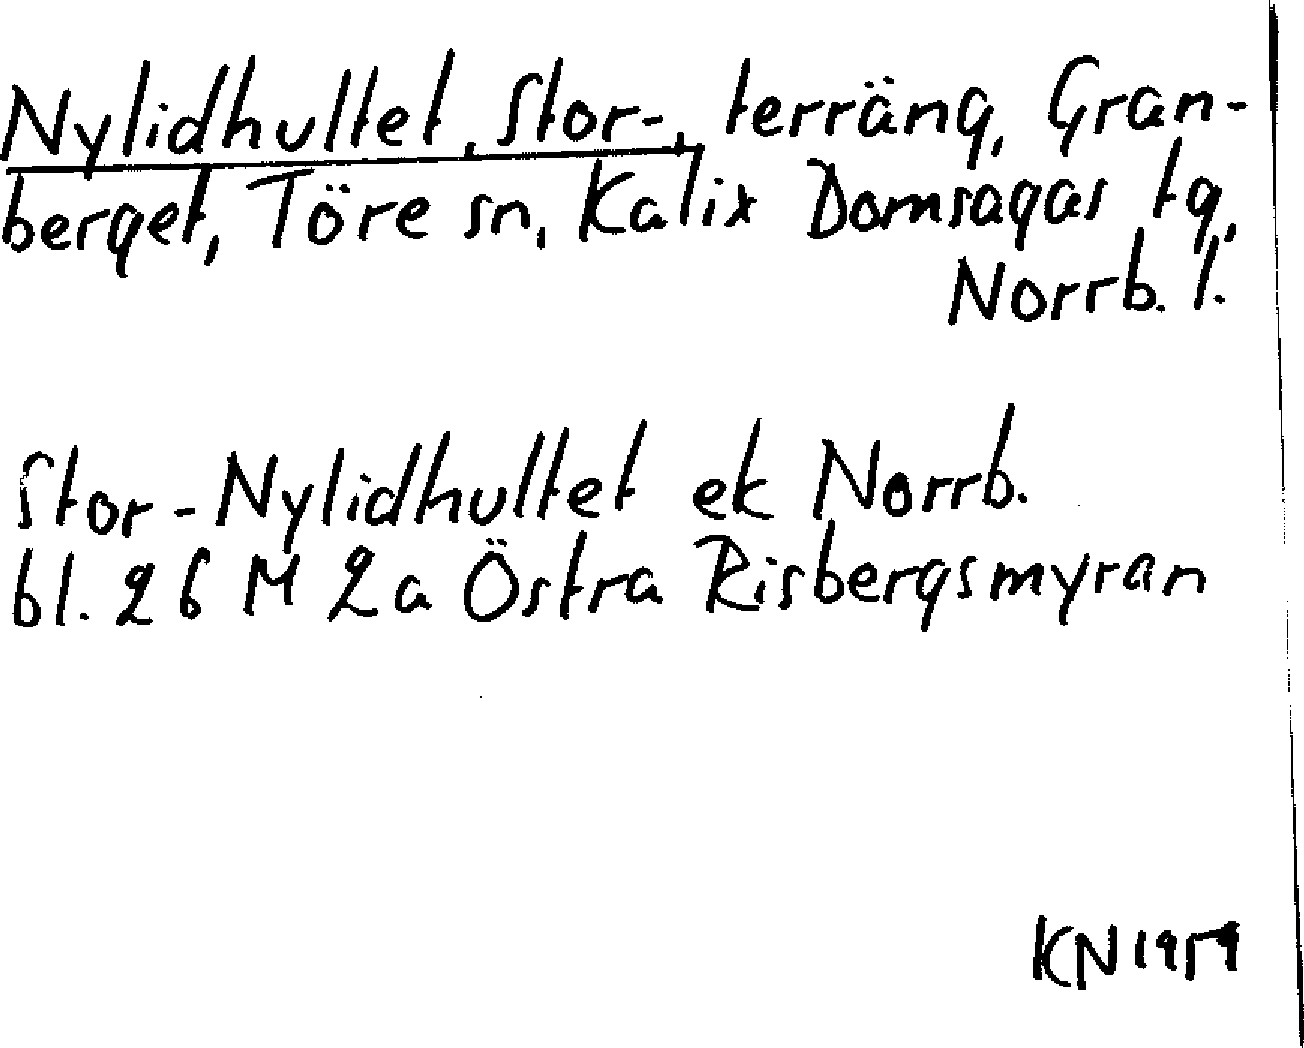 Nylidhultet, Stor-, terräng, Gran-
berget, Töre sn, Kalix Domsagas tg,
Norrb. l.
Stor-Nylidhultet ek Norrb.
bl. 26 M 2a Östra Risbergsmyran
KN 1959